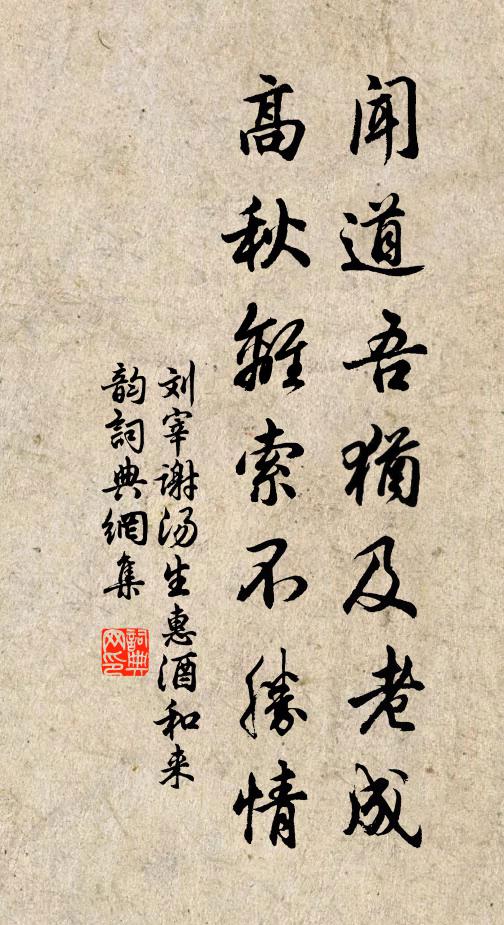 闻道吾犹及老成
高秋離索不勝情
刘宰谢汤生惠酒和来
韵詞典網集
詞典网印